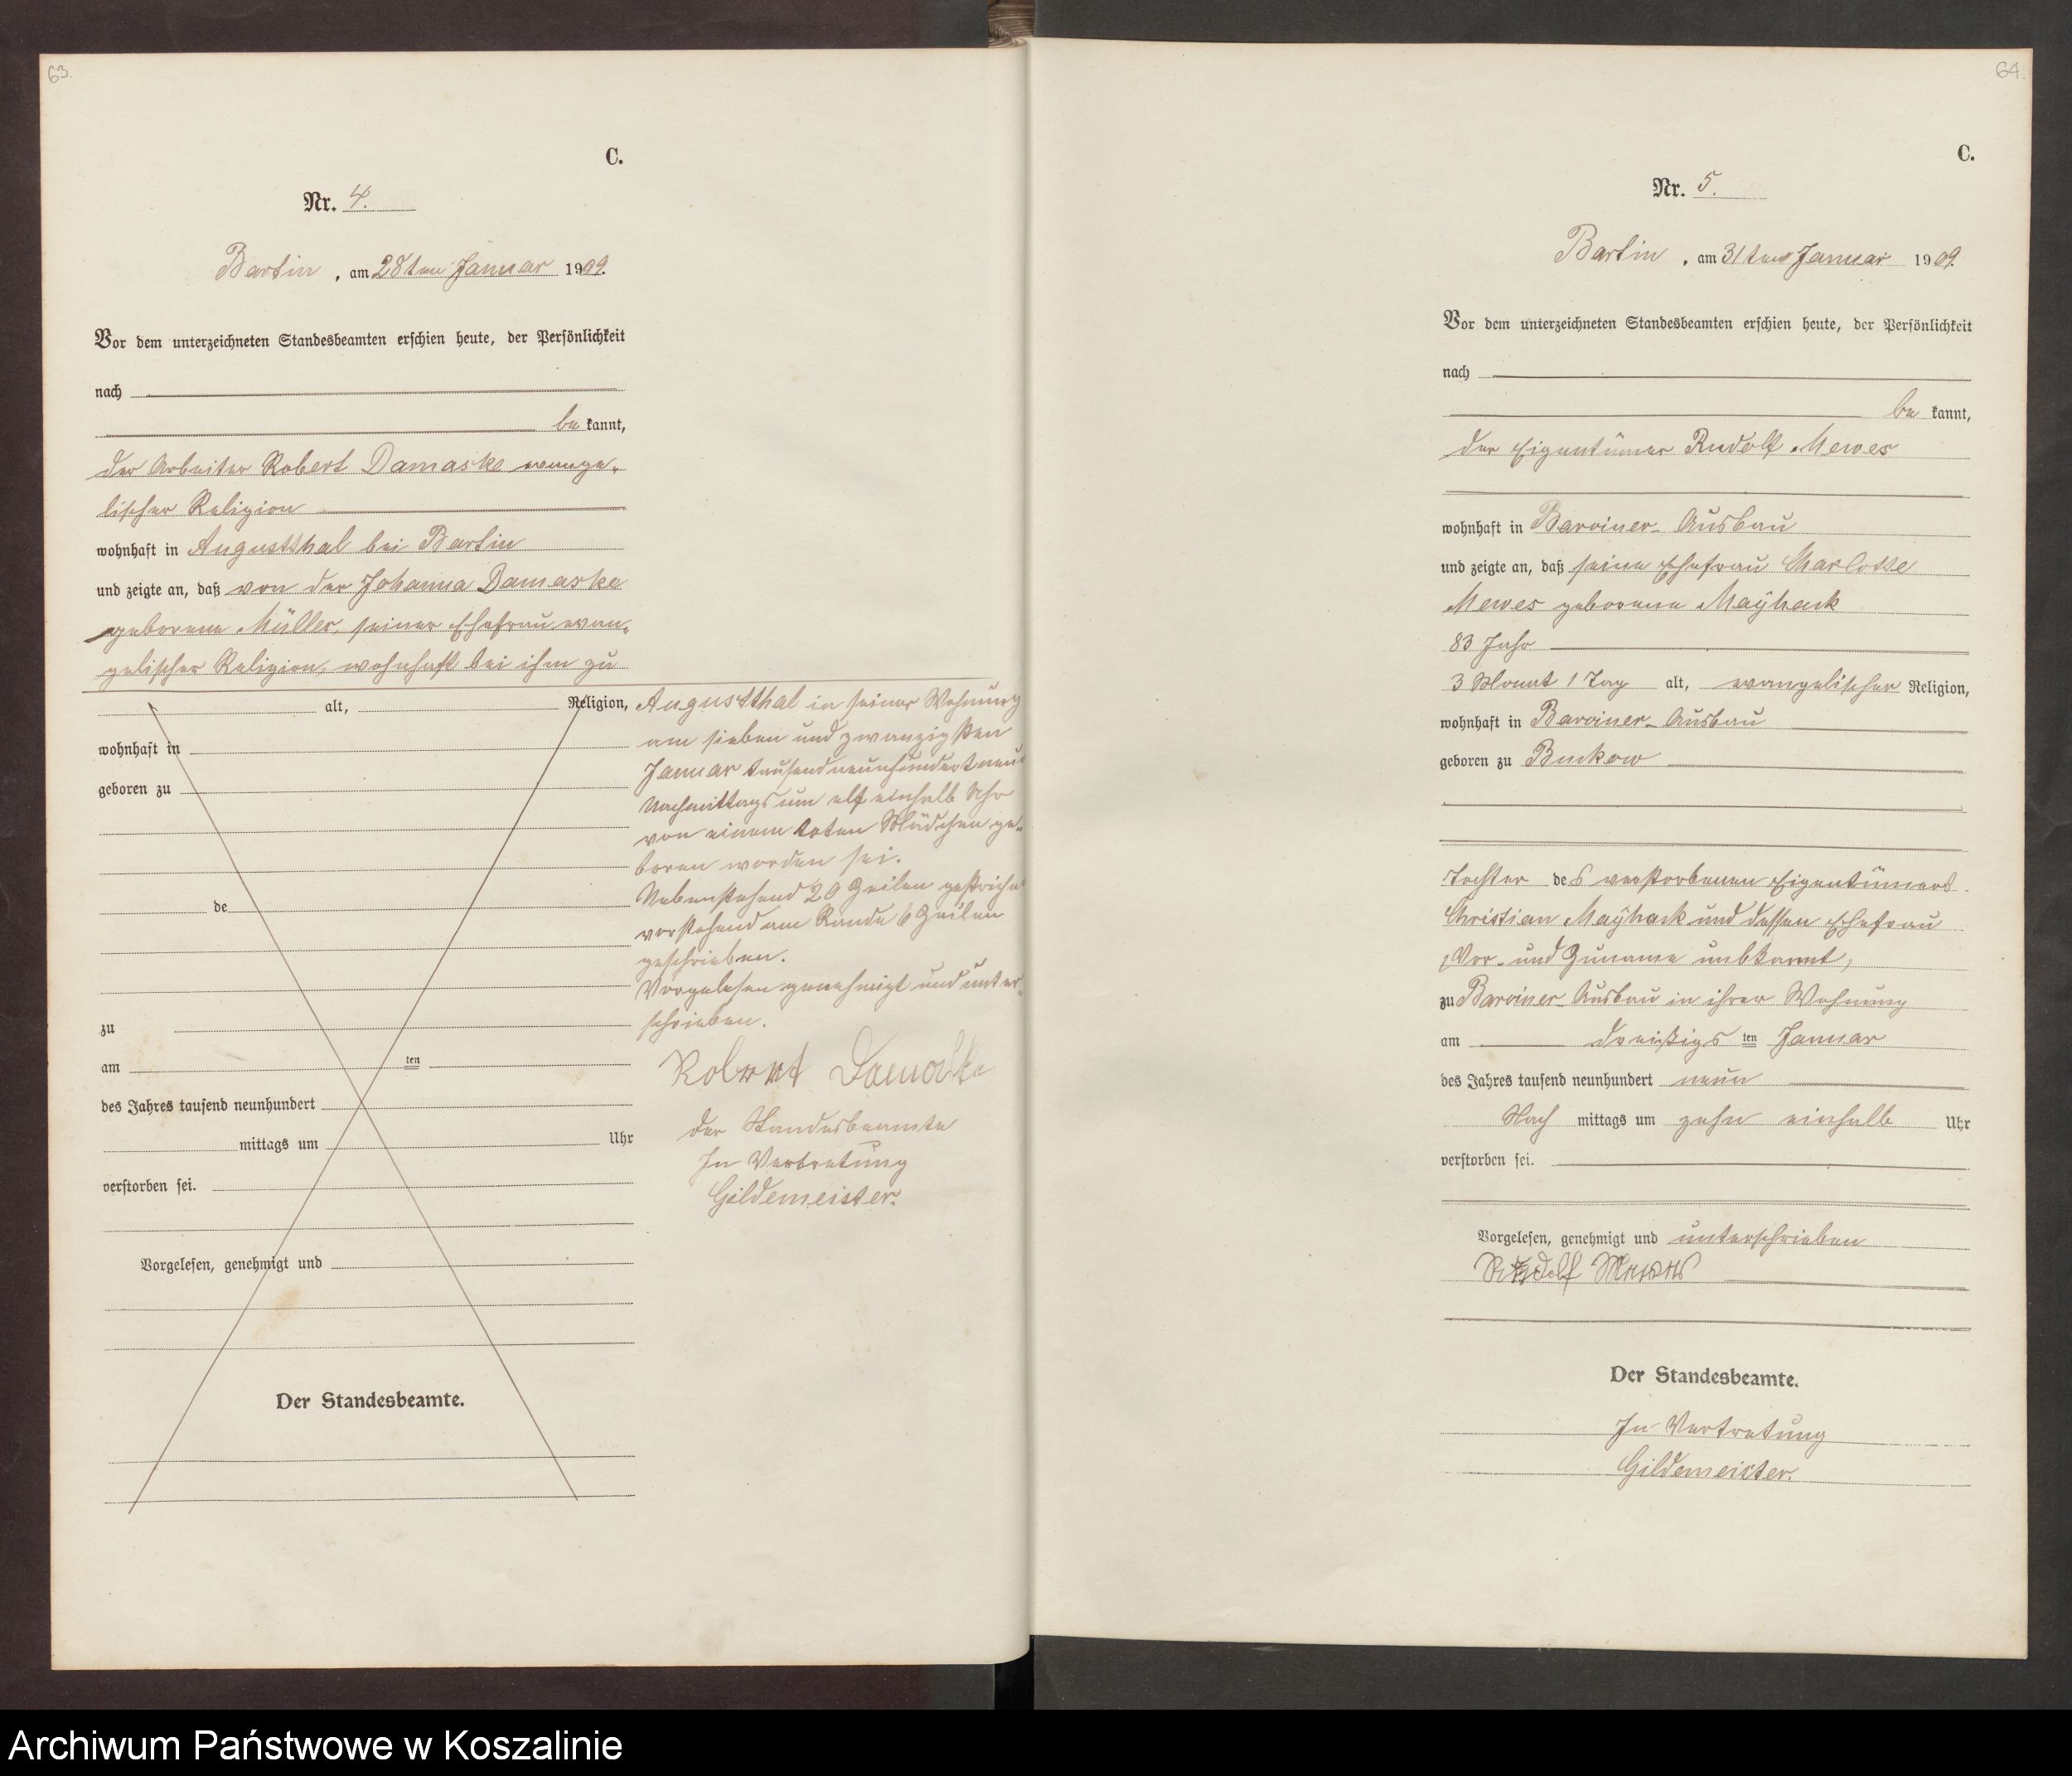 63.
C.
Nr. 4.
Bartin, am 28ten Januar 1909.
Vor dem unterzeichneten Standesbeamten erschien heute, der Persönlichkeit
nach
be kannt,
der Arbeiter Robert Damaske evange-
lischer Religion
wohnhaft in Augustthal bei Bartin
und zeigte an, daß von der Johanna Damaske
geborene Müller, seiner Ehefrau evan-
gelischer Religion, wohnhaft bei ihm zu
alt, Religion,
wohnhaft in
geboren zu
de
zu
am ten
des Jahres tausend neunhundert
mittags um Uhr
verstorben sei.
Vorgelesen, genehmigt und
Der Standesbeamte.
Augustthal in seiner Wohnung
am sieben und zwanzigsten
Januar tausendneunhundertneun
Nachmittags um elf einhalb Uhr
von einem toten Mädchen ge-
boren worden sei.
Nebenstehend 20 Zeilen gestrichen
vorstehend am Rande 6 Zeilen
geschrieben.
Vorgelesen genehmigt und unter-
schrieben.
Robert Damaske
Der Standesbeamte
In Vertretung
Gildemeister.
64.
C.
Nr. 5.
Bartin, am 31ten Januar 1909.
Vor dem unterzeichneten Standesbeamten erschien heute, der Persönlichkeit
nach
be kannt,
der Eigentümer Rudolf Mewes
wohnhaft in Barviner-Ausbau
und zeigte an, daß seine Ehefrau Charlotte
Mewes geborene Mayhack
83 Jahr
3 Monat 1 Tag alt, evangelischer Religion,
wohnhaft in Barviner-Ausbau
geboren zu Buckow
Tochter des verstorbenen Eigentümers
Christian Mayhack und dessen Ehefrau
Vor- und Zuname unbkannt,
zu Barviner-Ausbau in ihrer Wohnung
am dreißigs ten Januar
des Jahres tausend neunhundert neun
Nach mittags um zehn einhalb Uhr
verstorben sei.
Vorgelesen, genehmigt und unterschrieben
Rudolf Mewes
Der Standesbeamte.
In Vertretung
Gildemeister.
Archiwum Państwowe w Koszalinie